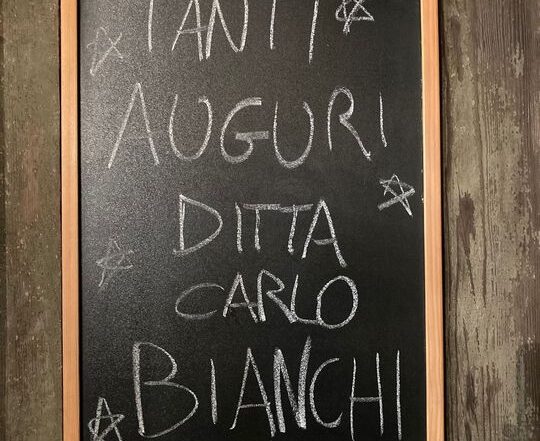 TANTI
AUGURI
DITTA
CARLO
BIANCHI